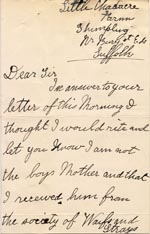 Little Chadacre
Farm
Shimpling
Nr Bury St Eds
Suffolk
Dear Sir
I in answer to your
letter of this Morning I
thought I would rite and
let you know I am not
the boys Mother and that
I received him from
the society of Waifs and
Strays